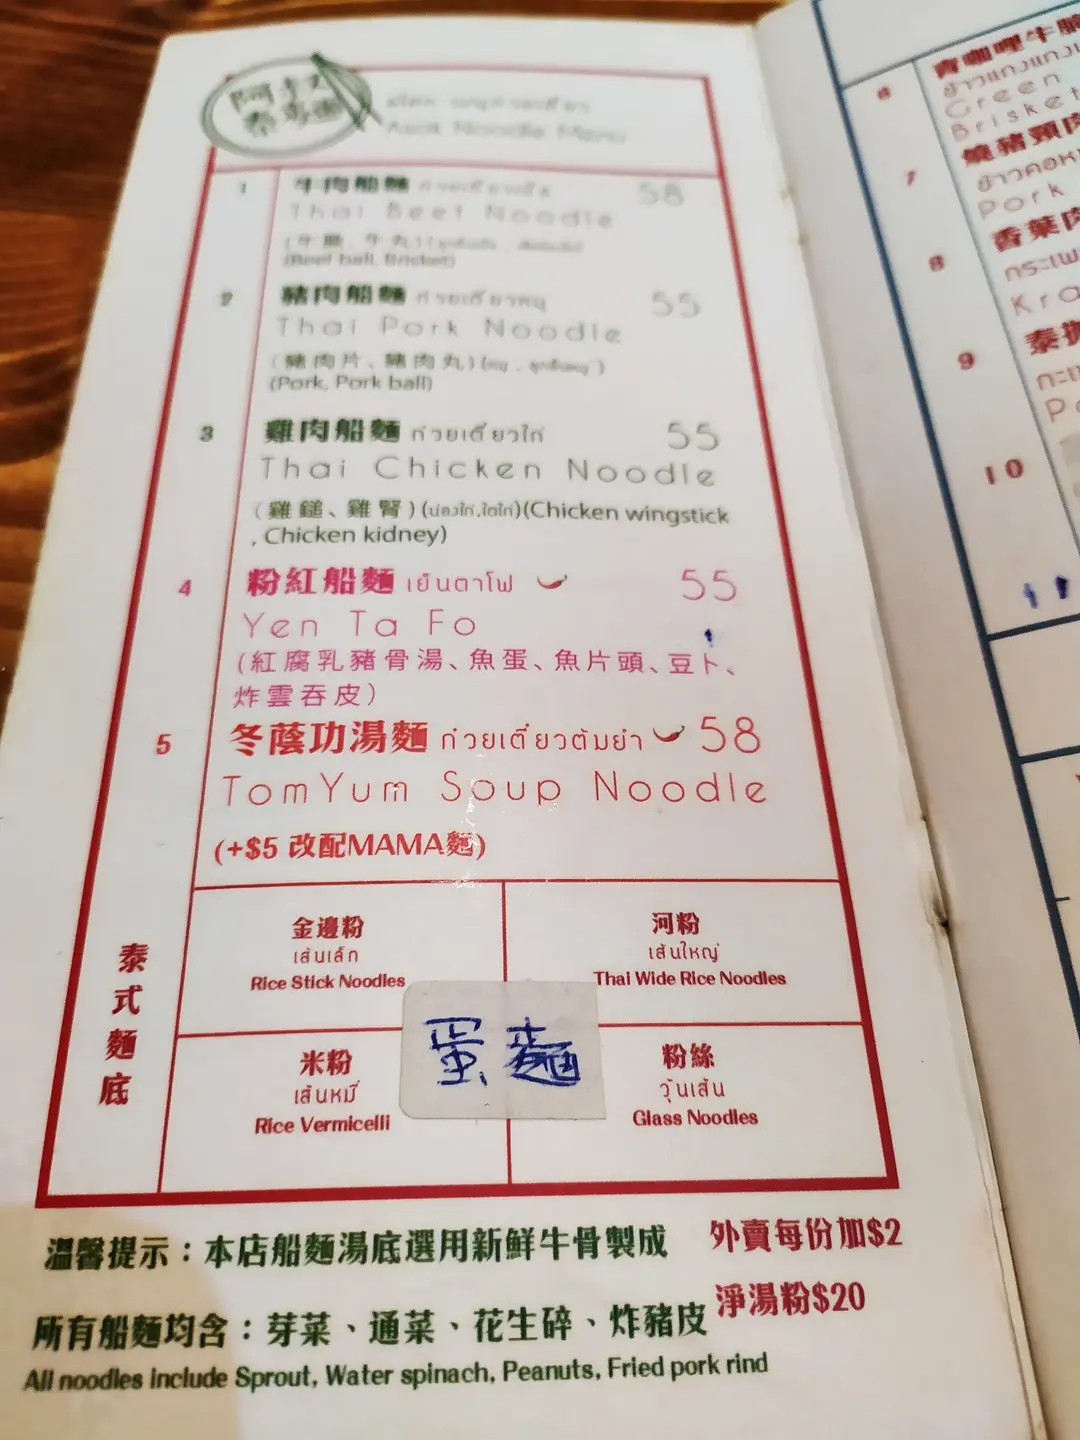 阿叔
泰專麵
Asok Noodle Menu
1 牛肉船麵 58
Thai Beef Noodle
(牛腩、牛丸)
(Beef ball, Bricket)
2 豬肉船麵 ก๋วยเตี๋ยวหมู 55
Thai Pork Noodle
(豬肉片、豬肉丸)(หมู , ลูกชิ้นหมู )
(Pork, Pork ball)
3 雞肉船麵 ก๋วยเตี๋ยวไก่ 55
Thai Chicken Noodle
(雞鎚、雞腎)(น่องไก่,ไตไก่)(Chicken wingstick
, Chicken kidney)
4 粉紅船麵 เย็นตาโฟ 55
Yen Ta Fo
(紅腐乳豬骨湯、魚蛋、魚片頭、豆卜、
炸雲吞皮)
5 冬蔭功湯麵 ก๋วยเตี๋ยวต้มยำ 58
TomYum Soup Noodle
(+$5 改配MAMA麵)
泰式麵底
金邊粉
เส้นเล็ก
Rice Stick Noodles
河粉
เส้นใหญ่
Thai Wide Rice Noodles
蛋麵
米粉
เส้นหมี่
Rice Vermicelli
粉絲
วุ้นเส้น
Glass Noodles
溫馨提示：本店船麵湯底選用新鮮牛骨製成
外賣每份加$2
淨湯粉$20
所有船麵均含：芽菜、通菜、花生碎、炸豬皮
All noodles include Sprout, Water spinach, Peanuts, Fried pork rind
6 青咖喱牛腩
Green
Brisket
7 燒豬頸肉
ข้าวคอหมู
Pork
8 香葉肉
กระเพ
Kra
9 泰
กะเ
P
10